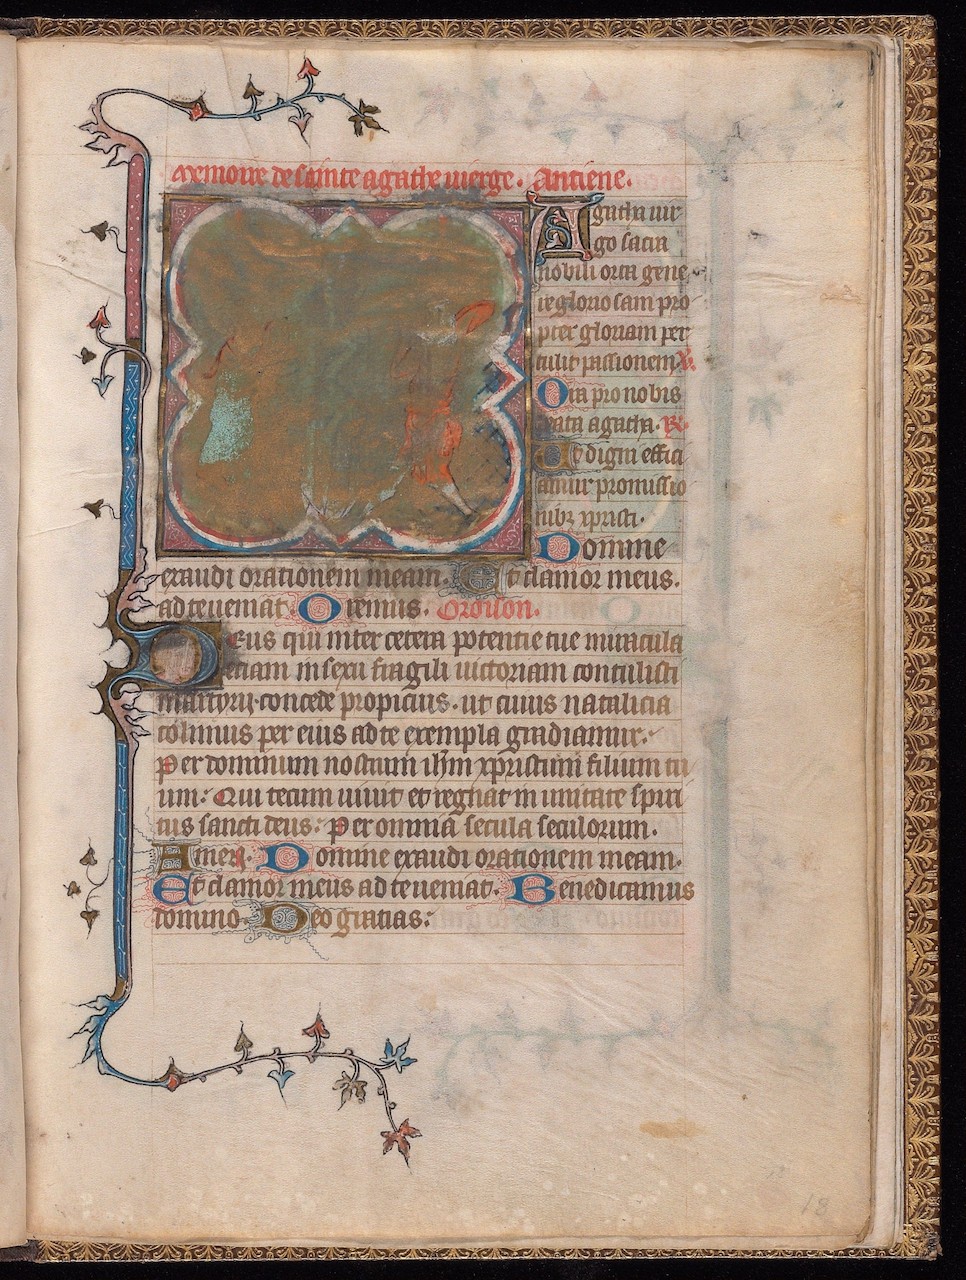 Memoire de sainte agathe uierge. Antiene.
Agatha uir
go sacra
nobili orta gene
re glorio sam pro
pter gloriam per
tulit passionem V.
Ora pro nobis
beata agatha. R.
Ut digni effici
amur promissio
nibz xpristi.
Domine
exaudi orationem meam. Et clamor meus.
ad te ueniat. Oremus. Oroison.
Deus qui inter cetera potentie tue miracula
etiam in sexu fragili uictoriam contulisti
martyrii concede propicius. ut cuius natalicia
colimus per eius ad te exempla gradiamur.
Per dominum nostrum ihm xpristum filium tu
um. Qui tecum uiuit et regnat in unitate spiri
tus sancti deus. Per omnia secula seculorum.
Amen. Domine exaudi orationem meam.
Et clamor meus ad te ueniat. Benedicamus
domino. Deo gratias.
18